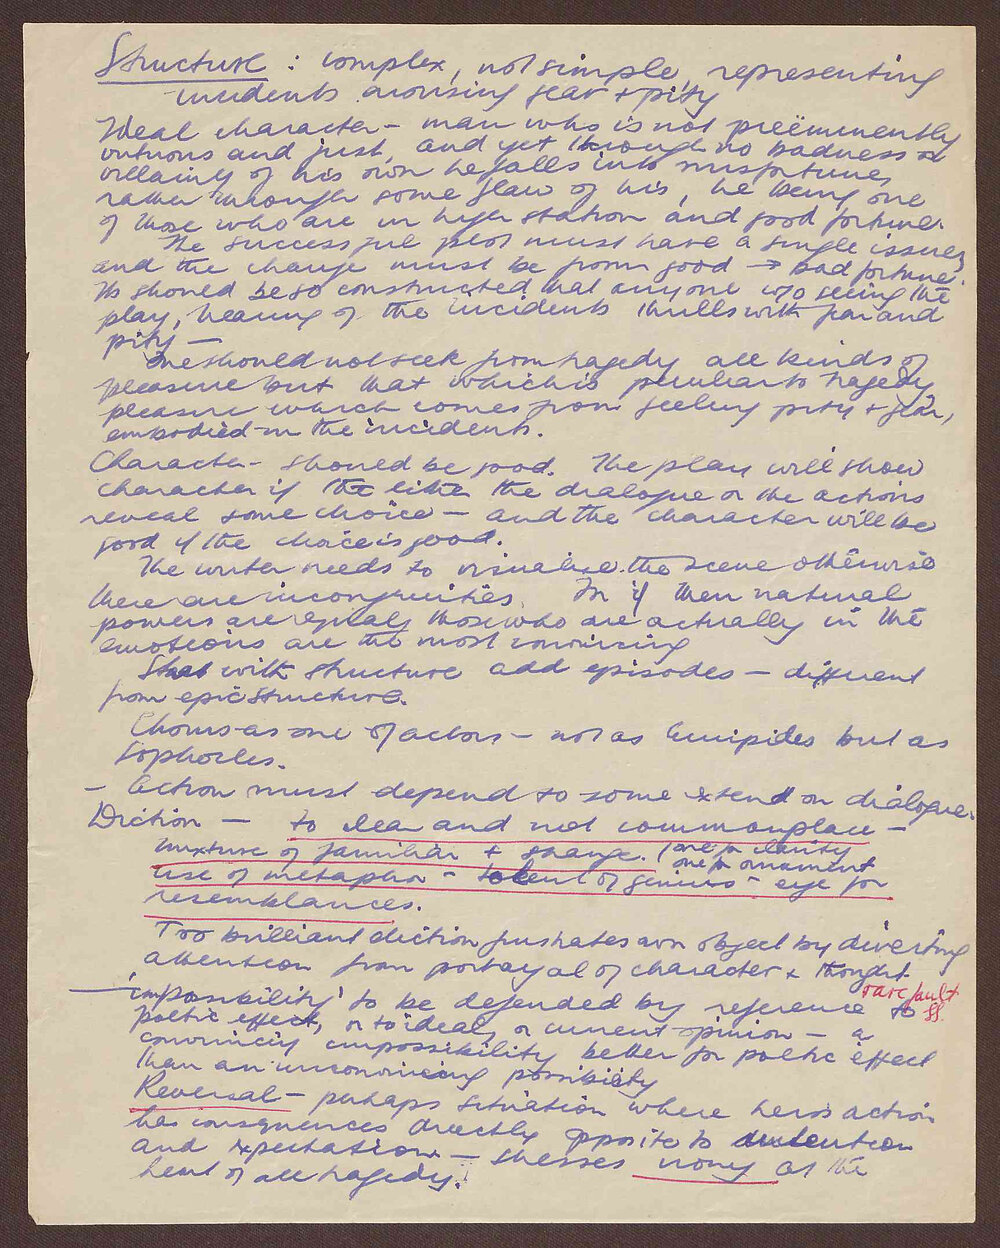 Structure : complex, not simple, representing
incidents arousing fear + pity
Ideal character – man who is not preëminently
virtuous and just, and yet through no badness or
villainy of his own he falls into misfortune,
rather through some flaw of his, he being one
of those who are in high station and good fortune.
The successful plot must have a single issue,
and the change must be from good → bad fortune.
It should be so constructed that anyone w/o seeing the
play, hearing of the incidents thrills with fear and
pity –
One should not seek from tragedy all kinds of
pleasure but that which is peculiar to tragedy,
pleasure which comes from feeling pity + fear,
embodied in the incidents.
Character – should be good. The play will show
character if either the dialogue or the actions
reveal some choice – and the character will be
good if the choice is good.
The writer needs to visualize the scene otherwise
there are incongruities. if their natural
powers are equal, those who are actually in the
emotions are the most convincing
Start with structure add episodes – different
from epic structure.
Chorus as one of actors – not as Euripides but as
Sophocles.
– Action must depend to some extent on dialogue.
Diction – to clear and not commonplace –
mixture of familiar + strange. (one for clarity
one for ornament
use of metaphor – talent of genius – eye for
resemblances.
Too brilliant diction frustrates own object by diverting
attention from portrayal of character + thought.
rare fault
– 'impossibility' to be defended by reference to
poetic effect, or to ideal, or current opinion – a
convincing impossibility better for poetic effect
than an unconvincing possibility
Reversal – perhaps situation where hero's action
has consequences directly opposite to intention
and expectation – stresses irony as the
heart of all tragedy.